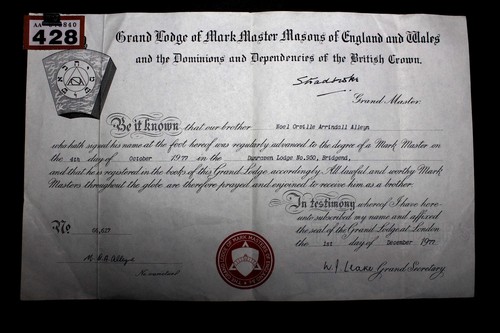 428
Grand Lodge of Mark Master Masons of England and Wales
and the Dominions and Dependencies of the British Crown.
Grand Master.
Be it known that our brother Noel Orville Arrindell Alleyn
who hath signed his name at the foot hereof was regularly advanced to the degree of a Mark Master on
the 4th day of October 1977 in the Lodge No. 950, Bridgend,
and that he is registered in the books of this Grand Lodge accordingly. All lawful and worthy Mark
Masters throughout the globe are therefore prayed and enjoined to receive him as a brother.
In testimony whereof I have here-
unto subscribed my name and affixed
the seal of the Grand Lodge at London
the 1st day of December 1977.
No
W. J. Leake Grand Secretary